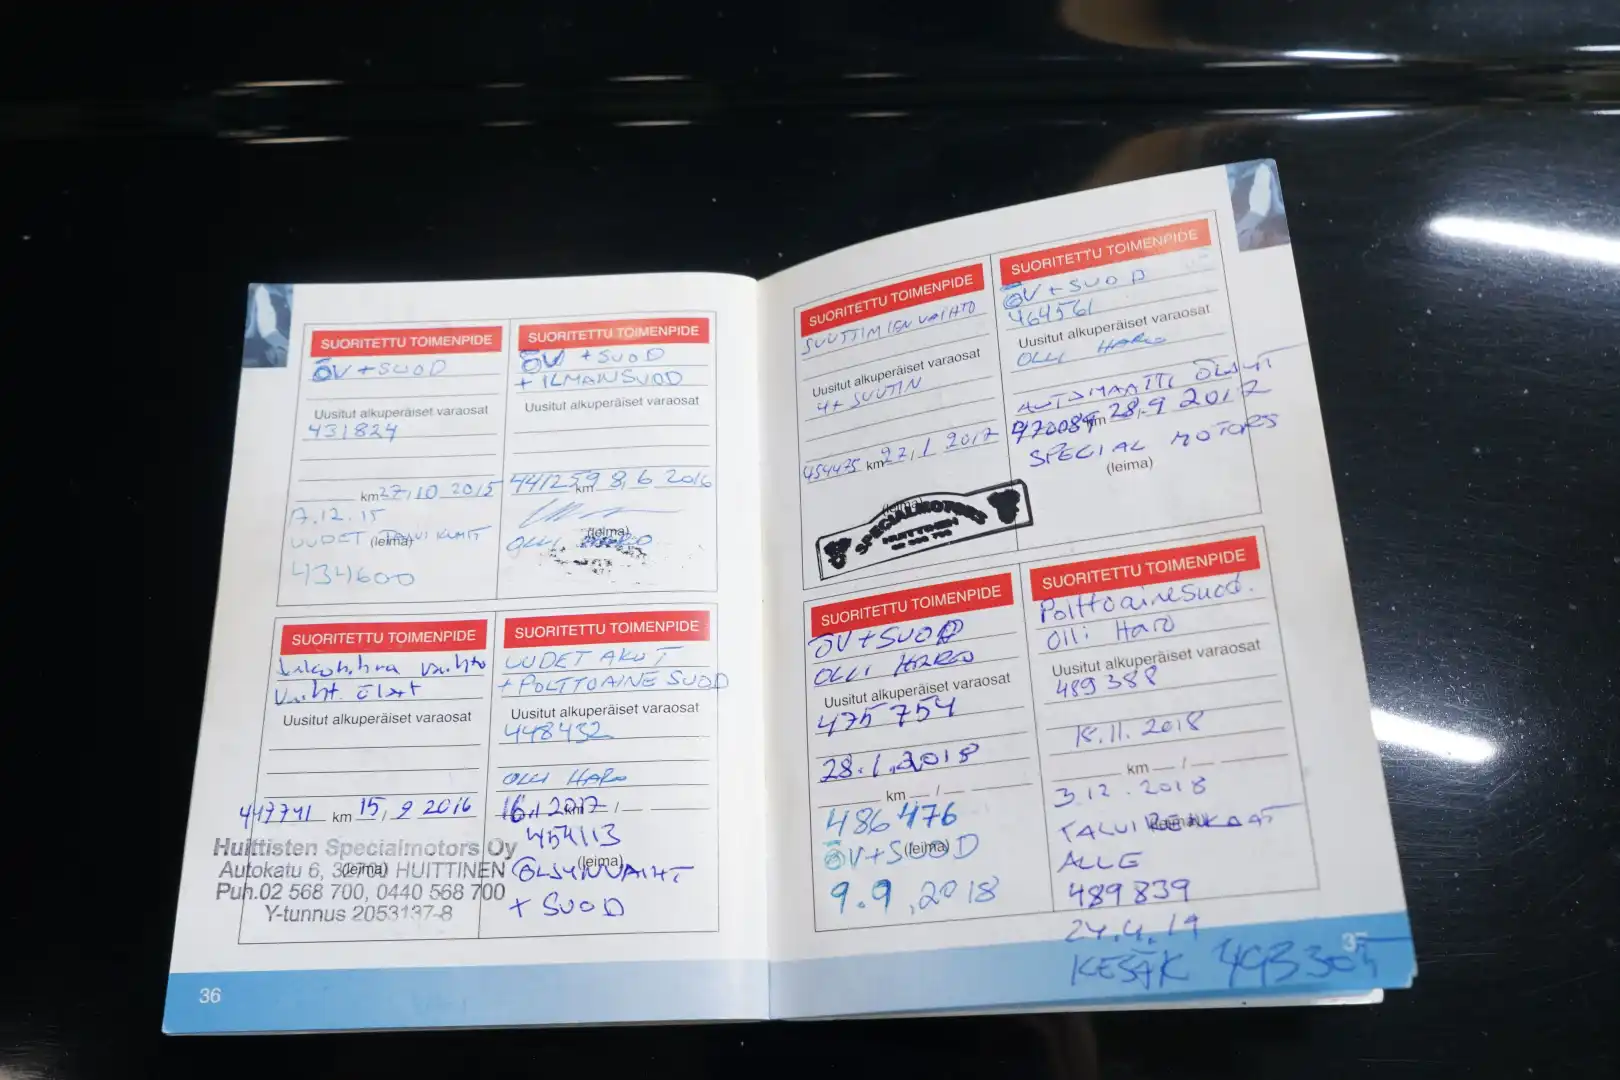 SUORITETTU TOIMENPIDE
ÖV + SUOD
Uusitut alkuperäiset varaosat
431824
km 27.10 2015
17.12.15
UUDET TALVI KUMIT
(leima)
434600
SUORITETTU TOIMENPIDE
ÖV + SUOD
+ ILMANSUOD
Uusitut alkuperäiset varaosat
441259 km 8.6 2016
(leima)
OLLI HARO
SUORITETTU TOIMENPIDE
vaihto
Vaiht. öljyt
Uusitut alkuperäiset varaosat
447741 km 15.9 2016
Huittisten Specialmotors Oy
Autokatu 6, 32700 HUITTINEN
(leima)
Puh.02 568 700, 0440 568 700
Y-tunnus 2053137-8
SUORITETTU TOIMENPIDE
UUDET AKUT
+ POLTTOAINE SUOD
Uusitut alkuperäiset varaosat
448432
OLLI HARO
16.1 2017 km
454113
(leima)
ÖLJYNVAIHT
+ SUOD
36
SUORITETTU TOIMENPIDE
SUUTTIMIEN VAIHTO
Uusitut alkuperäiset varaosat
4+ SUUTIN
454475 km 27.1 2017
(leima)
SPECIALMOTORS
HUITTINEN
02 568 700
SUORITETTU TOIMENPIDE
ÖV + SUOD
464561
Uusitut alkuperäiset varaosat
OLLI HARO
AUTOMAATTI ÖLJYT
470084 km 28.9 2017
SPECIAL MOTORS
(leima)
SUORITETTU TOIMENPIDE
ÖV + SUOD
OLLI HARO
Uusitut alkuperäiset varaosat
475 754
28.1.2018
km
486476
(leima)
ÖV + SUOD
9.9.2018
SUORITETTU TOIMENPIDE
Polttoainesuod.
Olli Haro
Uusitut alkuperäiset varaosat
489388
18.11.2018
km
3.12.2018
(leima)
TALVIRENKAAT
ALLE
489839
24.4.19
KESÄK 493305
37